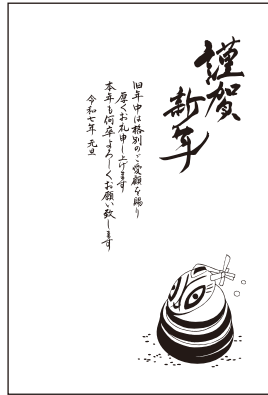 謹賀
新年
旧年中は格別のご愛顧を賜り
厚くお礼申し上げます
本年も何卒よろしくお願い致します
令和七年 元旦